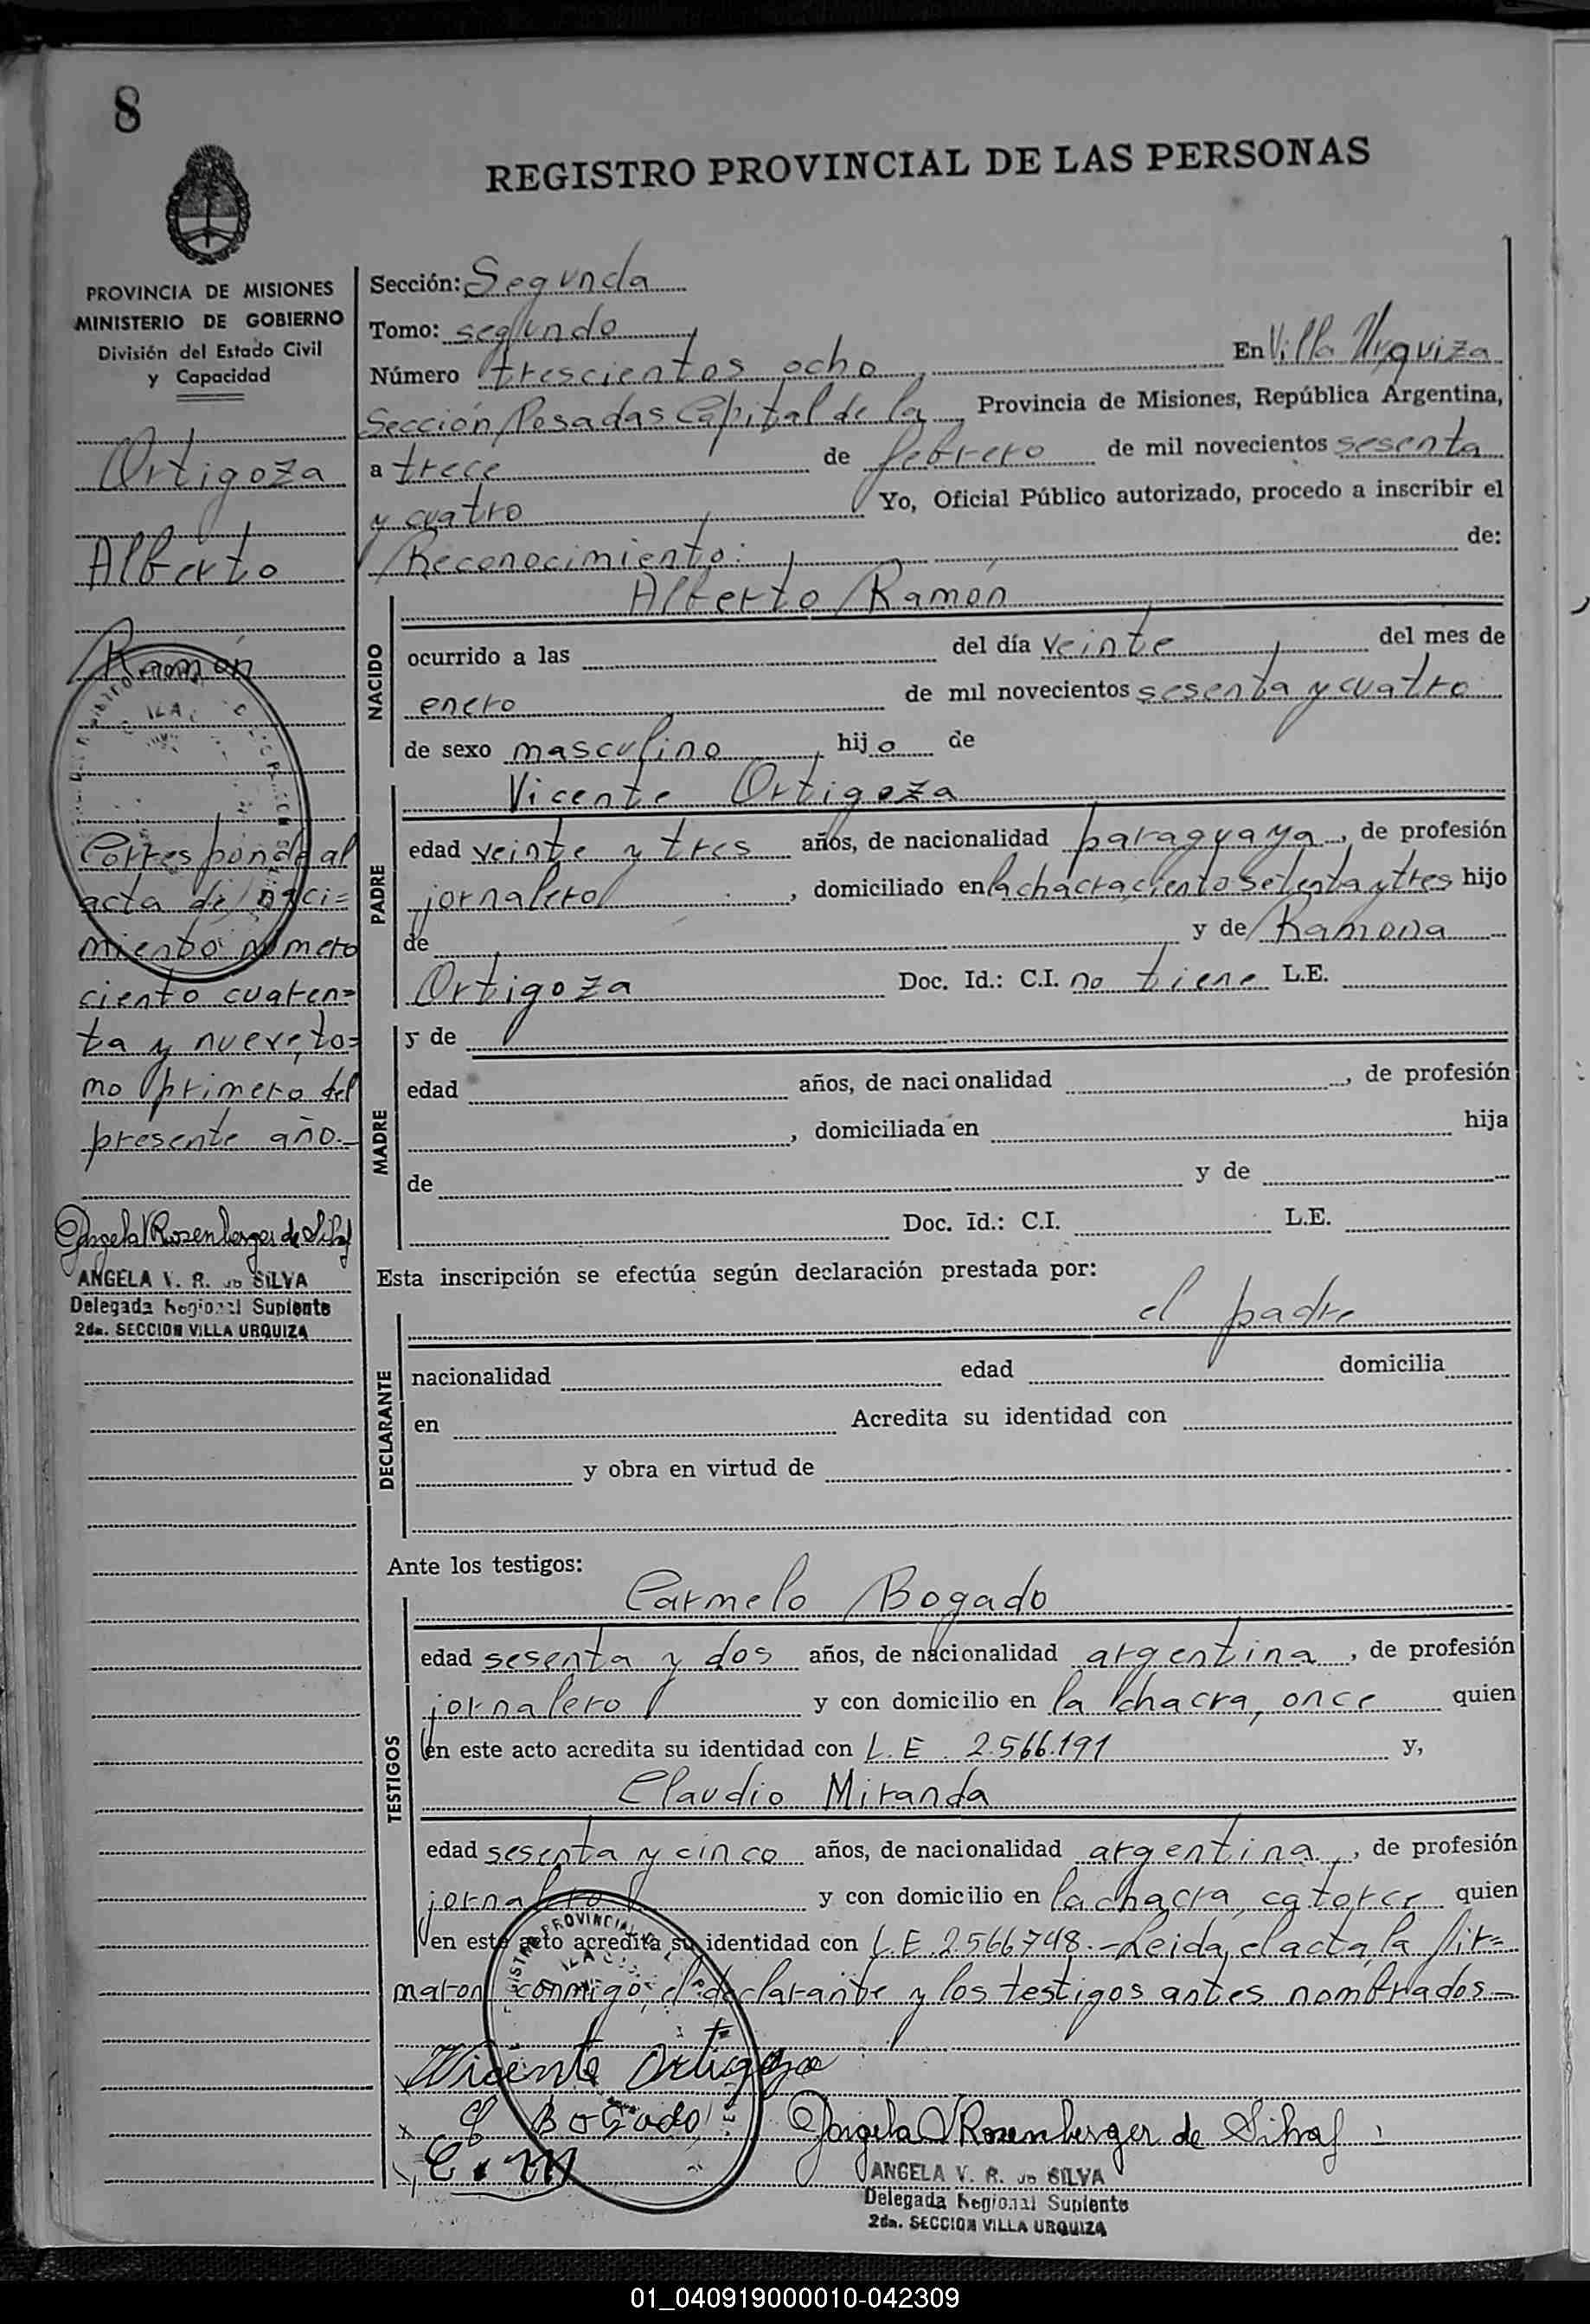 8
REGISTRO PROVINCIAL DE LAS PERSONAS
PROVINCIA DE MISIONES
MINISTERIO DE GOBIERNO
División del Estado Civil
y Capacidad
Ortigoza
Alberto
Ramón
Corresponde al
acta de naci=
miento número
ciento cuaren=
ta y nueve, to=
mo primero del
presente año.-
Angela V Rosenberger de Silva
ANGELA V. R. de SILVA
Delegada Regional Suplente
2da. SECCION VILLA URQUIZA
Sección: Segunda
Tomo: segundo
Número trescientos ocho, En Villa Urquiza
Sección Posadas Capital de la Provincia de Misiones, República Argentina,
a trece de febrero de mil novecientos sesenta
y cuatro Yo, Oficial Público autorizado, procedo a inscribir el
Reconocimiento: de:
NACIDO
Alberto Ramón
ocurrido a las del día veinte del mes de
enero de mil novecientos sesenta y cuatro
de sexo masculino, hijo de
PADRE
Vicente Ortigoza
edad veinte y tres años, de nacionalidad paraguaya, de profesión
jornalero, domiciliado en la chacra ciento setenta y tres hijo
de y de Ramona
Ortigoza Doc. Id.: C.I. no tiene L.E.
MADRE
y de
edad años, de nacionalidad , de profesión
, domiciliada en hija
de y de
Doc. Id.: C.I. L.E.
Esta inscripción se efectúa según declaración prestada por:
DECLARANTE
el padre
nacionalidad edad domicilia
en Acredita su identidad con
y obra en virtud de
Ante los testigos:
TESTIGOS
Carmelo Bogado
edad sesenta y dos años, de nacionalidad argentina, de profesión
jornalero y con domicilio en la chacra, once quien
en este acto acredita su identidad con L.E. 2.566.191 y,
Claudio Miranda
edad sesenta y cinco años, de nacionalidad argentina, de profesión
jornalero y con domicilio en la chacra, catorce quien
en este acto acredita su identidad con L.E. 2.566748.-Leida, el acta, la fir=
maron conmigo, el declarante y los testigos antes nombrados.-
Vicente Ortigoza
C Bogado
C. M
Angela V Rosenberger de Silva
ANGELA V. R. de SILVA
Delegada Regional Suplente
2da. SECCION VILLA URQUIZA
01_040919000010-042309